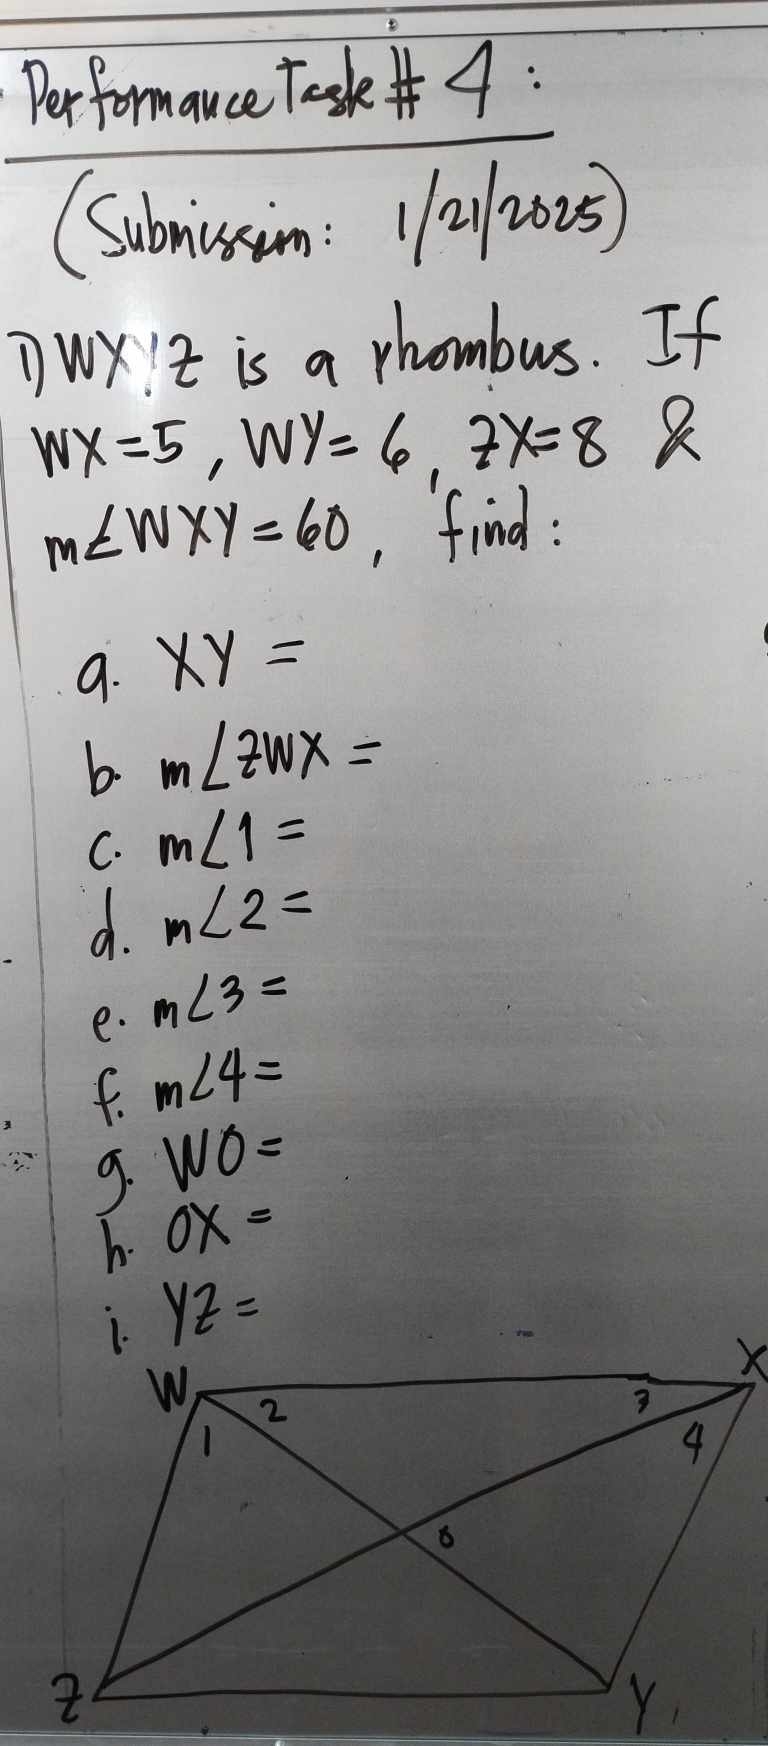 Performance Task # 4 :
(Submission: 1/21/2025)
1) WXYZ is a rhombus. If
WX=5, WY= 6, ZX=8 &
m∠WXY=60, find:
a. XY =
b. m∠ZWX =
c. m∠1 =
d. m∠2 =
e. m∠3 =
f. m∠4 =
g. WO =
h. OX =
i. YZ =
W X
2 3
1 4
O
Z Y